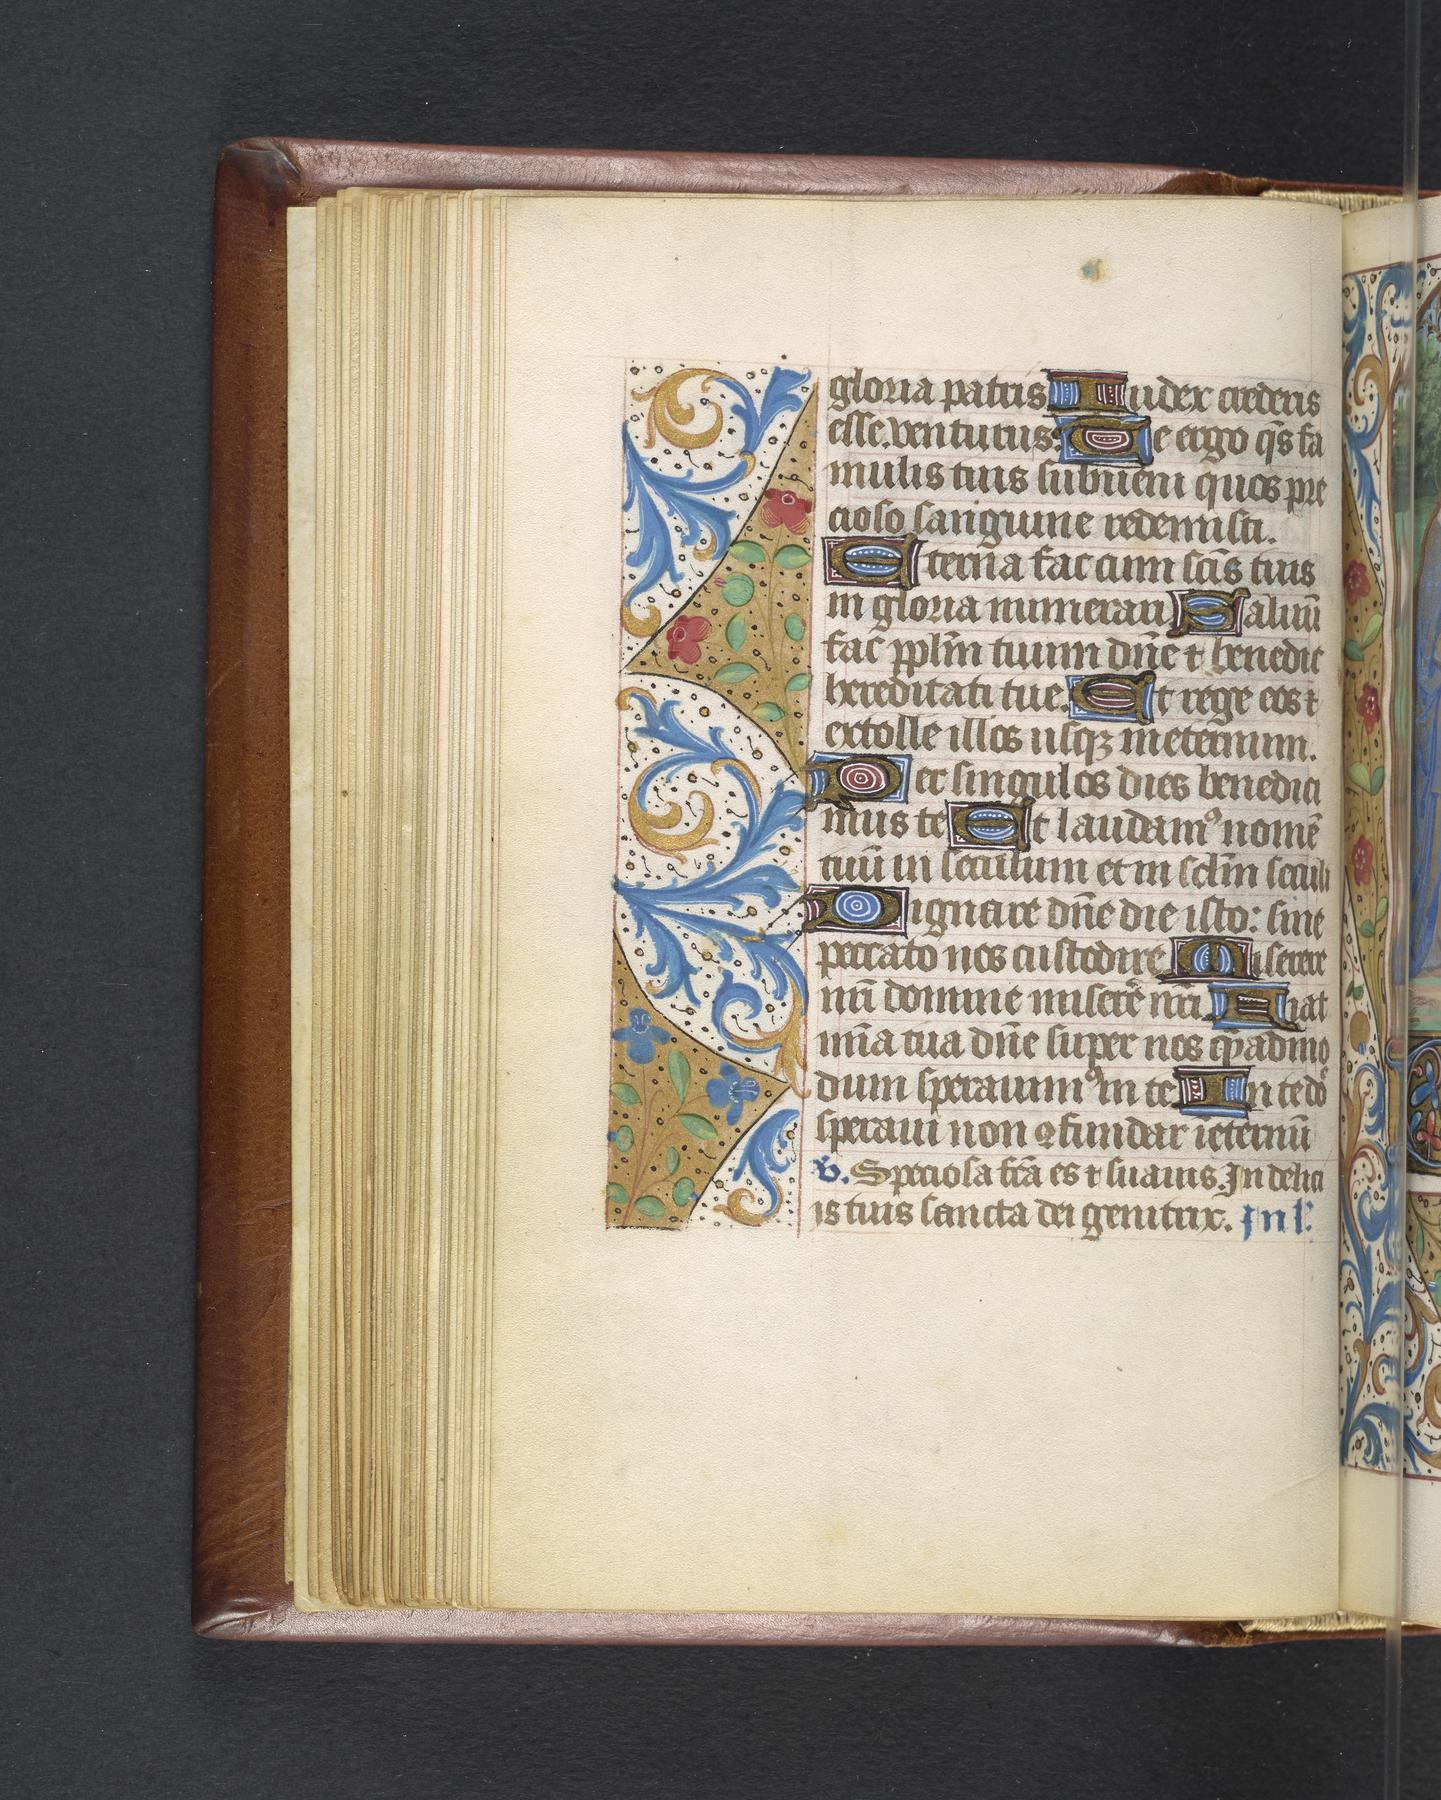 gloria patris Iudex crederis
esse. venturus: Te ergo q̄s fa
mulis tuis subueni quos pre
cioso sanguine redemisti.
Eterna fac cum scīs tuis
in gloria numerari Saluū
fac pplm̄ tuum dn̄e ⁊ benedic
hereditati tue. Et rege eos ⁊
extolle illos usqꝫ in eternum.
Per singulos dies benedici
mus te Et laudamꝰ nomē
tuū in seculum et in sclm̄ seculi
Dignare dn̄e die isto: sine
peccato nos custodire Miserere
nr̄i domine miserē nr̄i. Fiat
mīa tua dn̄e super nos qͣadmo
dum sperauimꝰ in te In te dō
speraui non ꝯfundar ieternū
v̄. Speciosa fc̄a es ⁊ suauis. In delici
is tuis sancta dei genitrix. In l'.